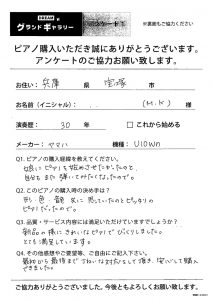 グランドギャラリー
※裏面もご協力ください
ピアノ購入いただき誠にありがとうございます。
アンケートのご協力お願い致します。
お住い: 兵庫 県 宝塚
お名前(イニシャル): (M.K) 様
演奏歴: 30 年 □ これから始める
メーカー: ヤマハ 機種: U10Wn
Q1. ピアノの購入経緯を教えてください。
娘にピアノを始めさせたかったのと、
自分もまた弾いてみたくなったので。
Q2. このピアノの購入時の決め手は?
形・色・音 共に思っていたのとピッタリの
ピアノだったので。
Q3. 品質・サービス内容には満足いただけていますでしょうか?
新品の様にきれいなピアノでびっくりしました。
とても満足しています。
Q4. その他感想やご要望等、ご自由にご記入下さい。
最初から最後までていねいな対応をして頂き、安心して購入
できました。
ご協力ありがとうございました。今後ともよろしくお願い致します。